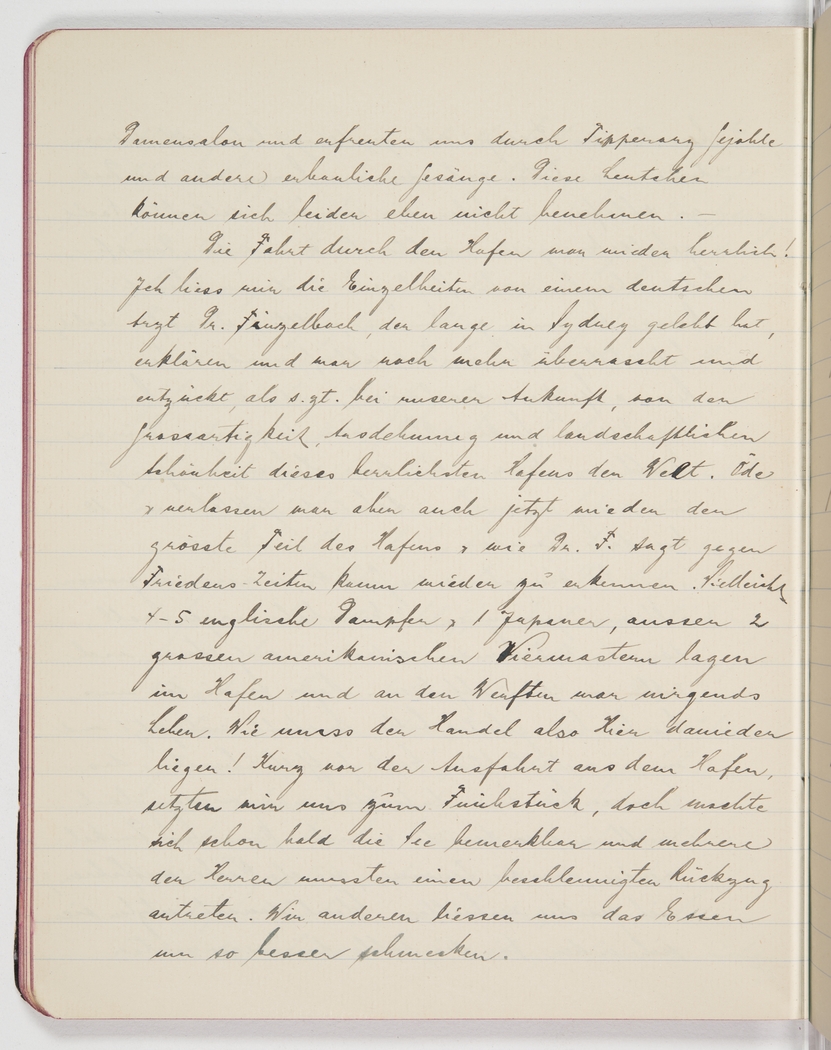 Damensalon und erfreuten uns durch Tipperary Gejohle
und andere erbauliche Gesänge. Diese Deutschen
können sich leider eben nicht benehmen. —
Die Fahrt durch den Hafen war wieder herrlich!
Ich liess mir die Einzelheiten von einem deutschen
Arzt Dr. Finzelbach, der lange in Sydney gelebt hat,
erklären und war noch mehr überrascht und
entzückt, als s.zt. bei unserer Ankunft, von der
Grossartigkeit, Ausdehnung und landschaftlichen
Schönheit dieses herrlichsten Hafens der Welt. Öde
& verlassen war aber auch jetzt wieder der
grösste Teil des Hafens & wie Dr. F. sagt gegen
Friedens-Zeiten kaum wieder zu erkennen. Vielleicht
4-5 englische Dampfer & 1 Japaner, ausser 2
grossen amerikanischen Viermastern lagen
im Hafen und an den Werften war nirgends
Leben. Wie muss der Handel also Hier danieder
liegen! Kurz vor der Ausfahrt aus dem Hafen,
setzten wir uns zum Frühstück, doch machte
sich schon bald die See bemerkbar und mehrere
der Herren mussten einen beschleunigten Rückzug
antreten. Wir anderen liessen uns das Essen
um so besser schmecken.